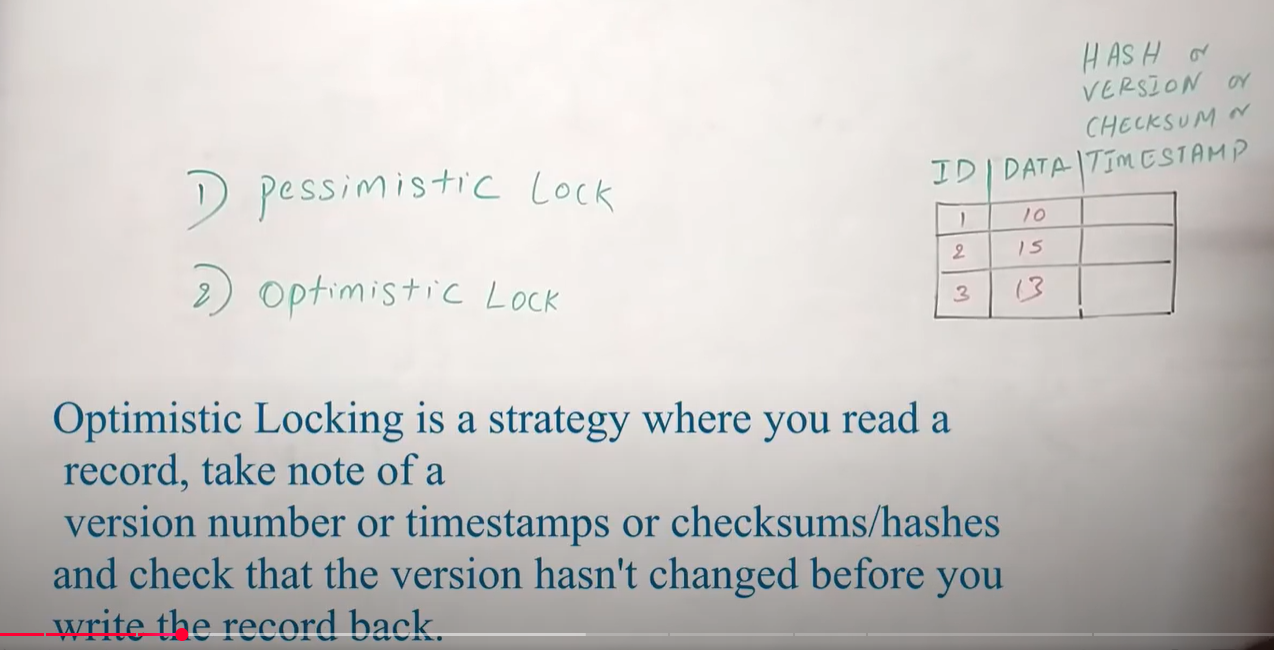 1) Pessimistic Lock
2) Optimistic Lock
HASH or
VERSION or
CHECKSUM or
ID | DATA | TIMESTAMP
1 10
2 15
3 13
Optimistic Locking is a strategy where you read a
record, take note of a
version number or timestamps or checksums/hashes
and check that the version hasn't changed before you
write the record back.